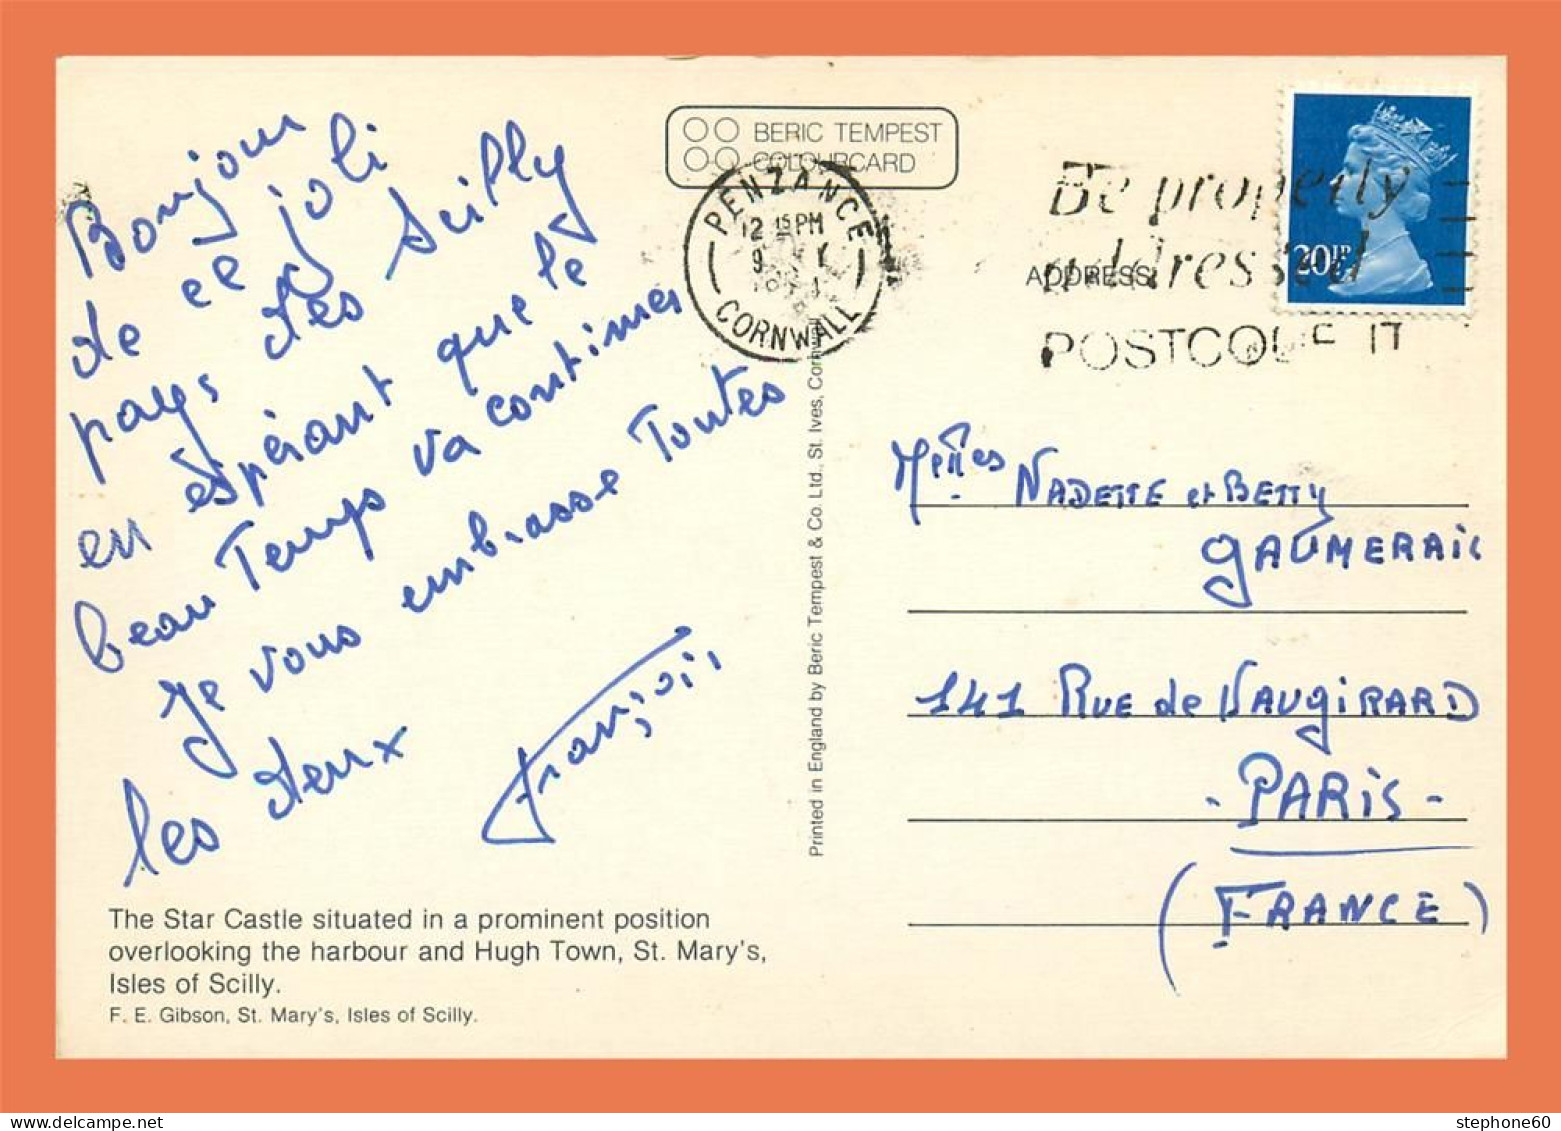 Bonjour
de ce joli
pays des Scilly
en espérant que le
beau Temps va continuer
Je vous embrasse Toutes
les deux
François
The Star Castle situated in a prominent position
overlooking the harbour and Hugh Town, St. Mary's,
Isles of Scilly.
F. E. Gibson, St. Mary's, Isles of Scilly.
BERIC TEMPEST
COLOURCARD
PENZANCE
12 15 PM
9
CORNWALL
Printed in England by Beric Tempest & Co. Ltd., St. Ives, Cornwall
Be properly
addressed
POSTCODE IT
ADDRESS
20½P
NADETTE et BETTY
GAUMERAIS
141 RUE de VAUGIRARD
- PARIS -
(FRANCE)
stephone60